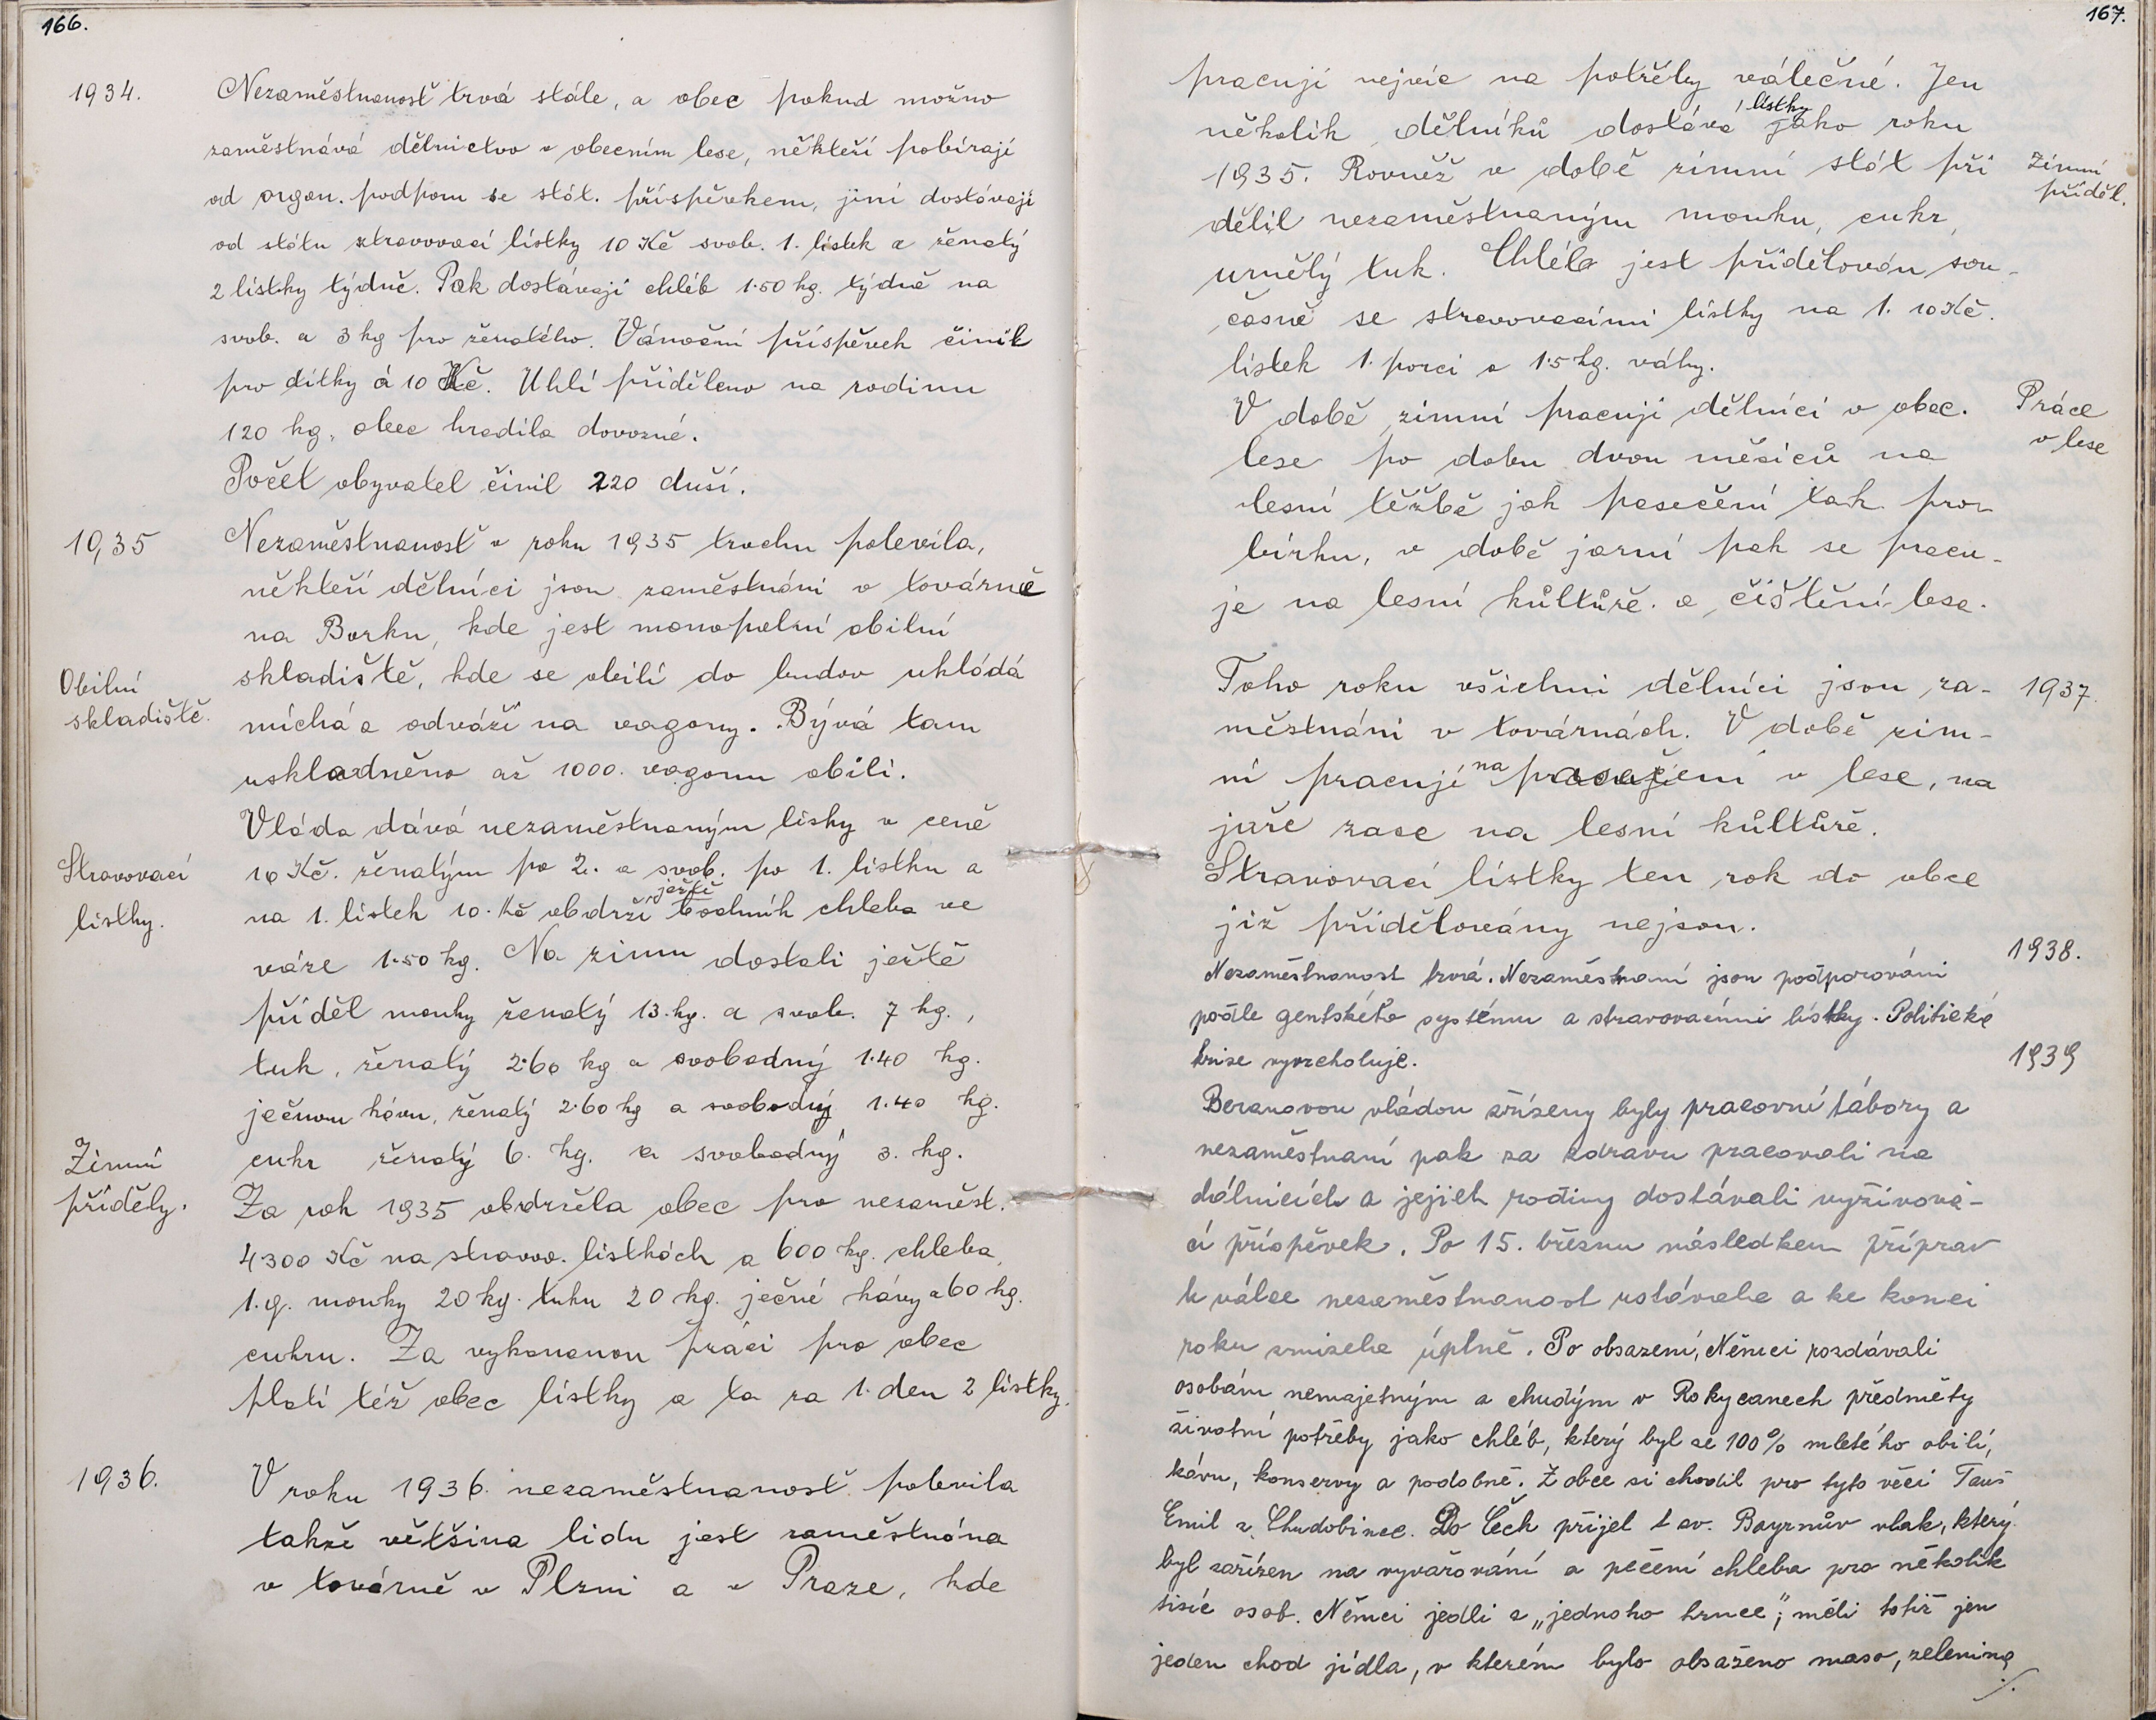 166.
1934.
Nezaměstnanosť trvá stále, a obec pokud možno
zaměstnává dělnictvo v obecním lese, někteří pobírají
od organ. podporu se stát. příspěvkem, jiní dostávají
od státu stravovací lístky 10 Kč svob. 1. lístek a ženatý
2 lístky týdně. Pak dostávají chléb 1·50 kg. týdně na
svob. a 3 kg pro ženatého. Vánoční příspěvek činil
pro dítky á 10 Kč. Uhlí přiděleno na rodinu
120 kg, obec hradila dovozné.
Počet obyvatel činil 220 duší.
1935
Nezaměstnanosť v roku 1935 trochu polevila,
někteří dělníci jsou zaměstnáni v továrně
na Borku, kde jest monopolní obilní
Obilní
skladiště.
skladiště, kde se obilí do budov ukládá
míchá a odváží na vagony. Bývá tam
uskladněno až 1000. vagonu obilí.
Vláda dává nezaměstnaným lísky v ceně
Stravovací
lístky.
10 Kč. ženatým po 2. a svob. po 1. lístku a
na 1. lístek 10. Kč obdrží ještě bochník chleba ve
váze 1·50 kg. Na zimu dostali ještě
příděl mouky ženatý 13. kg. a svob. 7 kg.,
tuk, ženatý 2·60 kg a svobodný 1·40 kg.
ječnou kávu, ženatý 2·60 kg a svobodný 1.40 kg.
Zimní
příděly.
cukr ženatý 6. kg. a svobodný 3. kg.
Za rok 1935 obdržela obec pro nezaměst.
4300 Kč na stravov. lístkách a 600 kg. chleba,
1. q. mouky 20 kg. tuku 20 kg. ječné kávy a 60 kg.
cukru. Za vykonanou práci pro obec
platí též obec lístky a to za 1. den 2 lístky.
1936.
V roku 1936. nezaměstnanosť polevila
takže většina lidu jest zaměstnána
v továrně v Plzni a v Praze, kde
167.
pracují nejvíc na potřeby válečné. Jen
několik dělníků dostává lístky jako roku
1935. Rovněž v době zimní stát při
Zimní
příděl.
dělil nezaměstnaným mouku, cukr,
umělý tuk. Chléb jest přidělován sou-
časně se stravovacími lístky na 1. 10 Kč.
lístek 1. porci o 1·5 kg. váhy.
V době zimní pracují dělníci v obec.
Práce
v lese
lese po dobu dvou měsíců na
lesní těžbě jak pasečení tak pro-
bírku, v době jarní pak se pracu-
je na lesní kůltůře. a čištění lesa.
1937.
Toho roku všichni dělníci jsou za-
městnáni v továrnách. V době zim-
ní pracují na pasečení v lese, na
jaře zase na lesní kůltůře.
Stravovací lístky ten rok do obce
již přidělovány nejsou.
1938.
Nezaměstnanost trvá. Nezaměstnaní jsou podporováni
podle gentského systému a stravovacími lístky. Politická
krise vyvrcholuje.
1939
Beranovou vládou zřízeny byly pracovní tábory a
nezaměstnaní pak za stravu pracovali na
dálnicích a jejich rodiny dostávali vyživova-
cí příspěvek. Po 15. březnu následkem příprav
k válce nezaměstnanost ustávala a ke konci
roku zmizela úplně. Po obsazení, Němci rozdávali
osobám nemajetným a chudým v Rokycanech předměty
životní potřeby jako chléb, který byl ze 100% mletého obilí,
kávu, konservy a podobně. Z obce si chodil pro tyto věci Tauš
Emil z Chudobince. Do Čech přijel t zv. Bayrnův vlak, který
byl zařízen na vyvařování a pečení chleba pro několik
tisíc osob. Němci jedli z „jednoho hrnce“, měli totiž jen
jeden chod jídla, v kterém bylo obsaženo maso, zelenina
./.